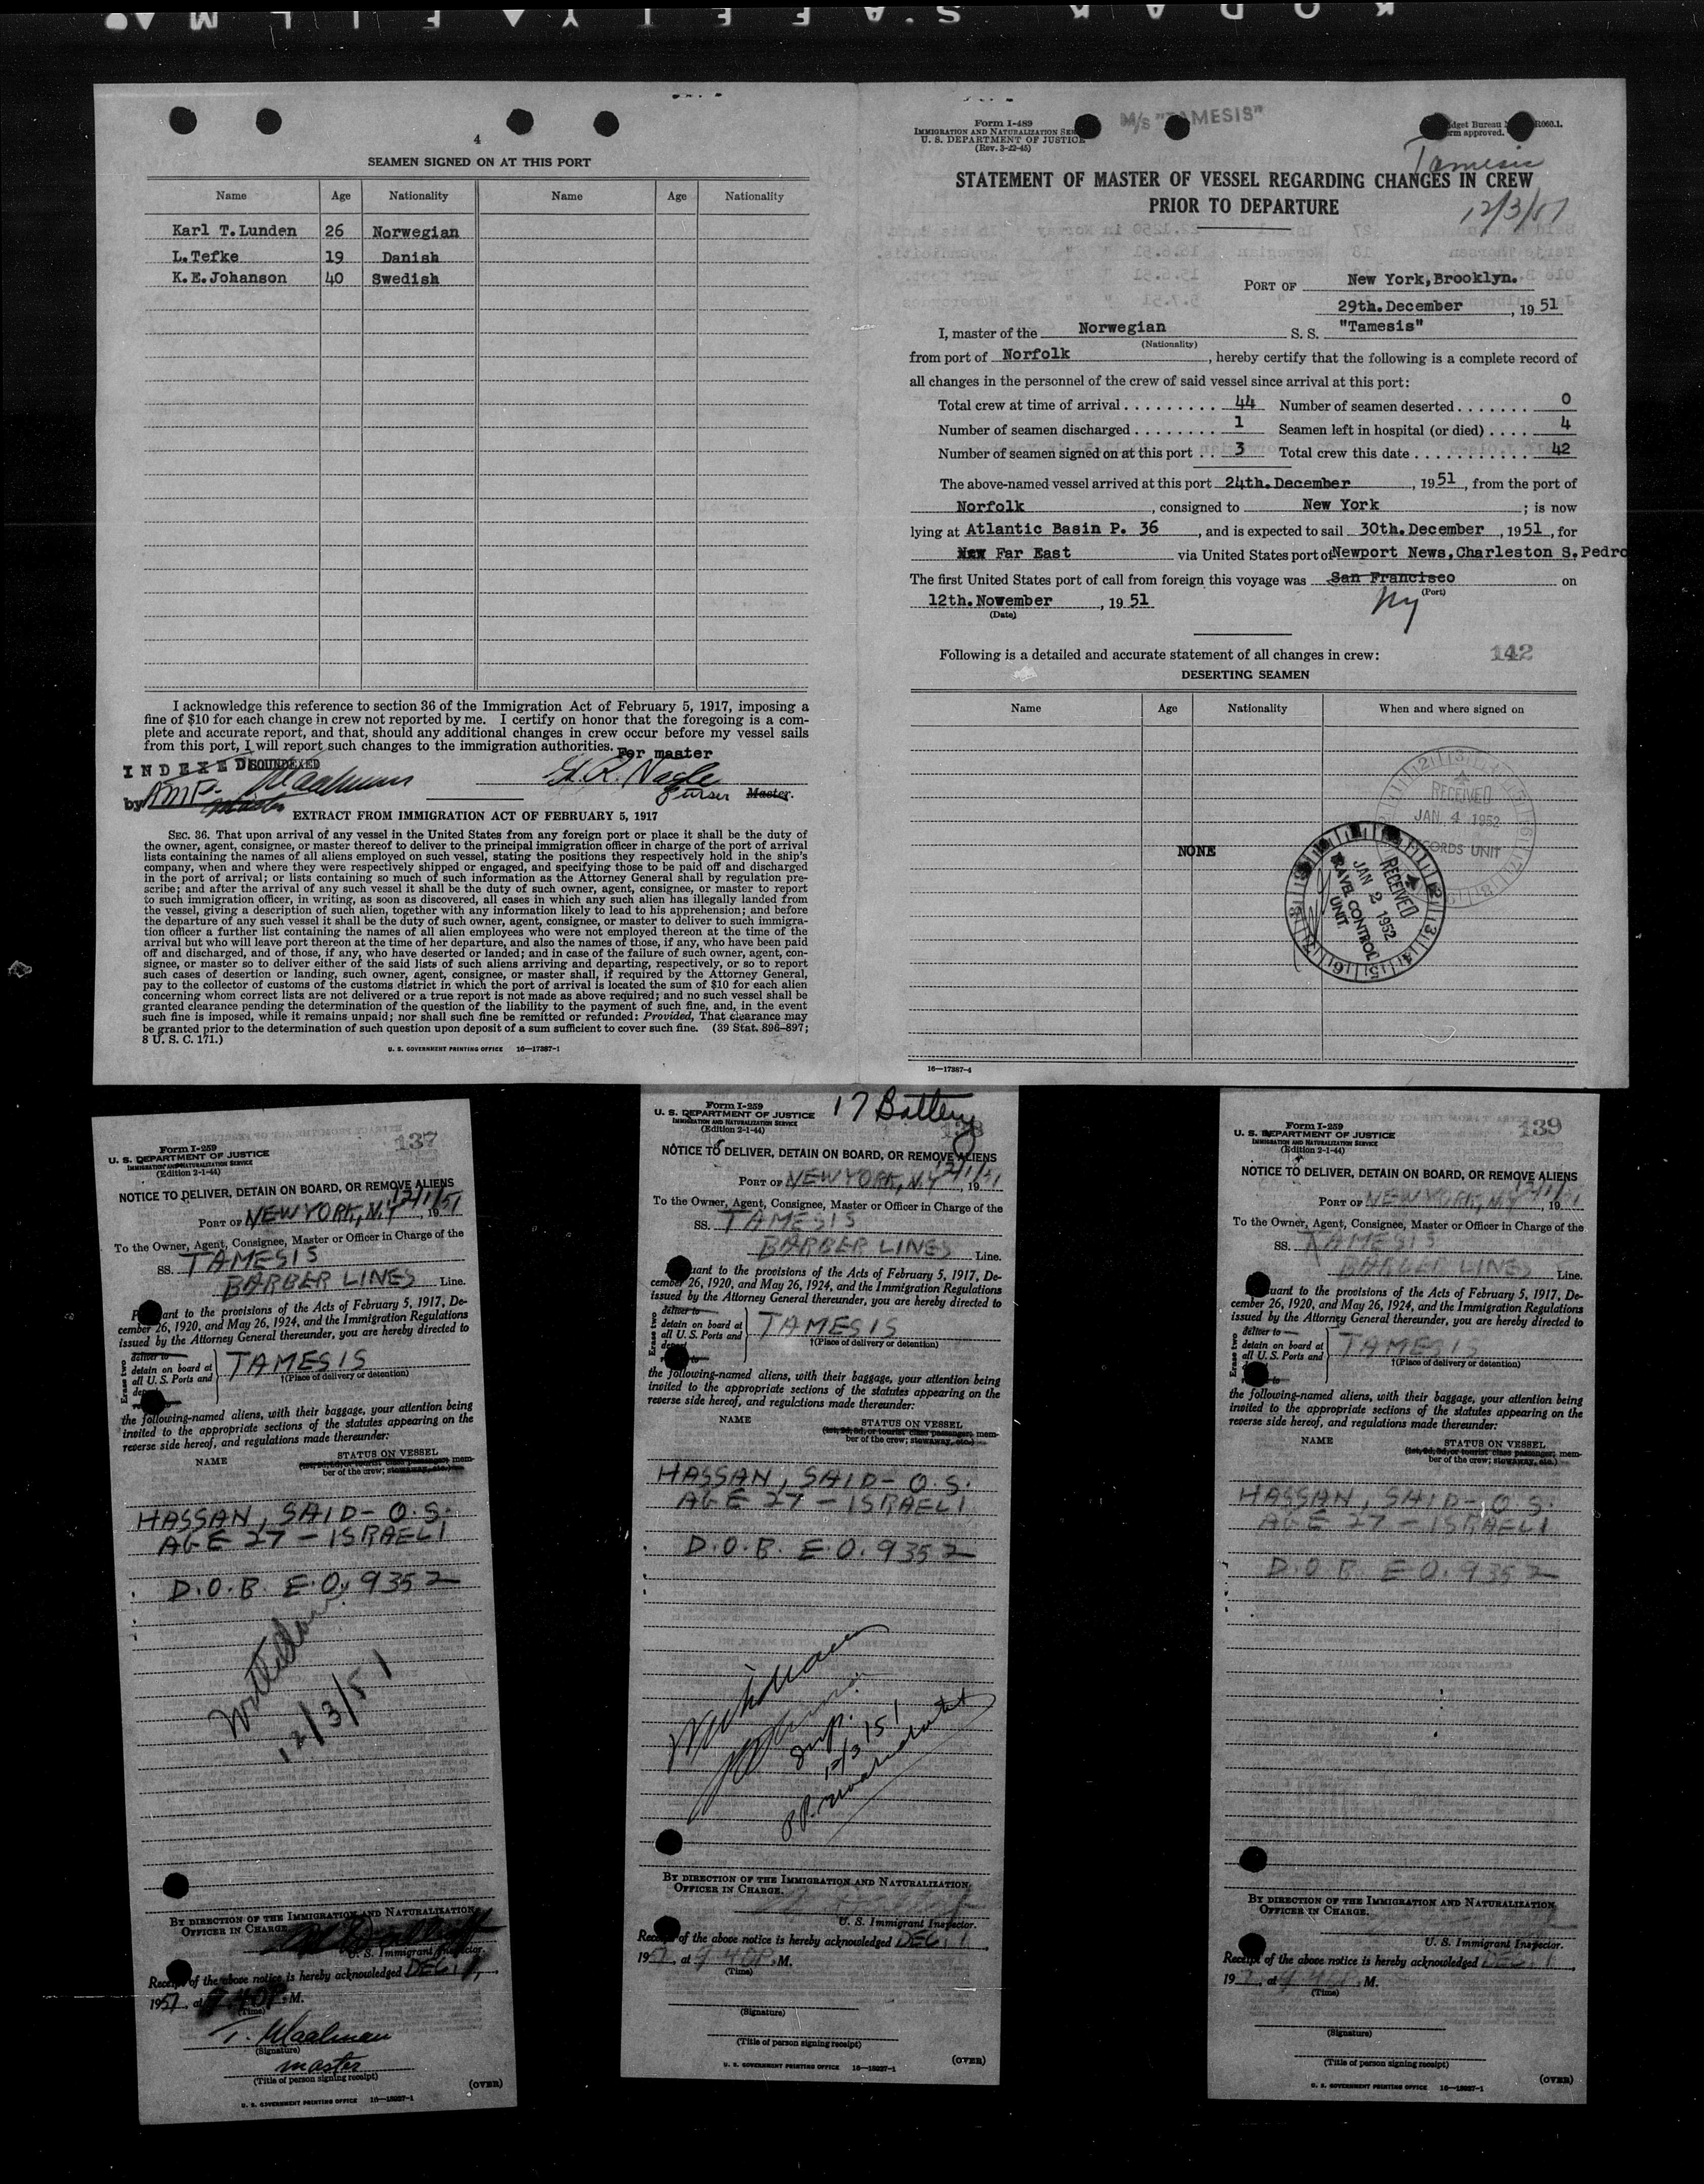 KODAK SAFETY FILM
4
SEAMEN SIGNED ON AT THIS PORT
Name Age Nationality Name Age Nationality
Karl T.Lunden 26 Norwegian
L.Tefke 19 Danish
K.E.Johanson 40 Swedish
I acknowledge this reference to section 36 of the Immigration Act of February 5, 1917, imposing a
fine of $10 for each change in crew not reported by me. I certify on honor that the foregoing is a com-
plete and accurate report, and that, should any additional changes in crew occur before my vessel sails
from this port, I will report such changes to the immigration authorities.
For master
INDEXED SOUNDEXED
by
Purser Master.
EXTRACT FROM IMMIGRATION ACT OF FEBRUARY 5, 1917
SEC. 36. That upon arrival of any vessel in the United States from any foreign port or place it shall be the duty of
the owner, agent, consignee, or master thereof to deliver to the principal immigration officer in charge of the port of arrival
lists containing the names of all aliens employed on such vessel, stating the positions they respectively hold in the ship's
company, when and where they were respectively shipped or engaged, and specifying those to be paid off and discharged
in the port of arrival; or lists containing so much of such information as the Attorney General shall by regulation pre-
scribe; and after the arrival of any such vessel it shall be the duty of such owner, agent, consignee, or master to report
to such immigration officer, in writing, as soon as discovered, all cases in which any such alien has illegally landed from
the vessel, giving a description of such alien, together with any information likely to lead to his apprehension; and before
the departure of any such vessel it shall be the duty of such owner, agent, consignee, or master to deliver to such immigra-
tion officer a further list containing the names of all alien employees who were not employed thereon at the time of the
arrival but who will leave port thereon at the time of her departure, and also the names of those, if any, who have been paid
off and discharged, and of those, if any, who have deserted or landed; and in case of the failure of such owner, agent, con-
signee, or master so to deliver either of the said lists of such aliens arriving and departing, respectively, or so to report
such cases of desertion or landing, such owner, agent, consignee, or master shall, if required by the Attorney General,
pay to the collector of customs of the customs district in which the port of arrival is located the sum of $10 for each alien
concerning whom correct lists are not delivered or a true report is not made as above required; and no such vessel shall be
granted clearance pending the determination of the question of the liability to the payment of such fine, and, in the event
such fine is imposed, while it remains unpaid; nor shall such fine be remitted or refunded: Provided, That clearance may
be granted prior to the determination of such question upon deposit of a sum sufficient to cover such fine. (39 Stat. 896–897;
8 U. S. C. 171.)
U. S. GOVERNMENT PRINTING OFFICE 16—17387-1
Form I-489
IMMIGRATION AND NATURALIZATION SER
U. S. DEPARTMENT OF JUSTICE
(Rev. 3-22-45)
M/s "TAMESIS"
dget Bureau R060.1.
rm approved.
Tamesis
12/3/51
STATEMENT OF MASTER OF VESSEL REGARDING CHANGES IN CREW
PRIOR TO DEPARTURE
PORT OF New York,Brooklyn.
29th.December, 1951
I, master of the Norwegian S. S. "Tamesis"
(Nationality)
from port of Norfolk, hereby certify that the following is a complete record of
all changes in the personnel of the crew of said vessel since arrival at this port:
Total crew at time of arrival 44 Number of seamen deserted 0
Number of seamen discharged 1 Seamen left in hospital (or died) 4
Number of seamen signed on at this port 3 Total crew this date 42
The above-named vessel arrived at this port 24th.December, 1951, from the port of
Norfolk, consigned to New York; is now
lying at Atlantic Basin P. 36, and is expected to sail 30th.December, 1951, for
Far East via United States port of Newport News,Charleston S.Pedro
The first United States port of call from foreign this voyage was San Francisco on
(Port)
NY
12th.November, 1951
(Date)
Following is a detailed and accurate statement of all changes in crew: 142
DESERTING SEAMEN
Name Age Nationality When and where signed on
NONE
RECEIVED
JAN 4 1952
RECORDS UNIT
RECEIVED
JAN 2 1952
TRAVEL CONTROL
UNIT
16—17387-4
137
Form I-259
U. S. DEPARTMENT OF JUSTICE
IMMIGRATION AND NATURALIZATION SERVICE
(Edition 2-1-44)
NOTICE TO DELIVER, DETAIN ON BOARD, OR REMOVE ALIENS
PORT OF NEW YORK, N.Y 12/1/51
To the Owner, Agent, Consignee, Master or Officer in Charge of the
SS. TAMESIS
BARBER LINES Line.
P ant to the provisions of the Acts of February 5, 1917, De-
cember 26, 1920, and May 26, 1924, and the Immigration Regulations
issued by the Attorney General thereunder, you are hereby directed to
Erase two
deliver to
detain on board at
all U. S. Ports and
TAMESIS
†(Place of delivery or detention)
the following-named aliens, with their baggage, your attention being
invited to the appropriate sections of the statutes appearing on the
reverse side hereof, and regulations made thereunder:
NAME STATUS ON VESSEL
(1st, 2d, 3d, or tourist class passenger; mem-
ber of the crew; stowaway, etc.)
HASSAN, SAID- O.S.
AGE 27 - ISRAELI
D.O.B. E.O. 9352
12/3/51
BY DIRECTION OF THE IMMIGRATION AND NATURALIZATION
OFFICER IN CHARGE.
U. S. Immigrant Inspector.
Receipt of the above notice is hereby acknowledged DEC. 1,
1951, at 9 40P. M.
(Time)
T. Maalman
(Signature)
master
(Title of person signing receipt)
(OVER)
U. S. GOVERNMENT PRINTING OFFICE 16—18927-1
17 Battery
138
Form I-259
U. S. DEPARTMENT OF JUSTICE
IMMIGRATION AND NATURALIZATION SERVICE
(Edition 2-1-44)
NOTICE TO DELIVER, DETAIN ON BOARD, OR REMOVE ALIENS
PORT OF NEW YORK, N.Y 12/1/51, 19
To the Owner, Agent, Consignee, Master or Officer in Charge of the
SS. TAMESIS
BARBER LINES Line.
uant to the provisions of the Acts of February 5, 1917, De-
cember 26, 1920, and May 26, 1924, and the Immigration Regulations
issued by the Attorney General thereunder, you are hereby directed to
Erase two
deliver to
detain on board at
all U. S. Ports and
TAMESIS
†(Place of delivery or detention)
the following-named aliens, with their baggage, your attention being
invited to the appropriate sections of the statutes appearing on the
reverse side hereof, and regulations made thereunder:
NAME STATUS ON VESSEL
(1st, 2d, 3d, or tourist class passenger; mem-
ber of the crew; stowaway, etc.)
HASSAN, SAID- O.S.
AGE 27 - ISRAELI
D.O.B. E.O. 9352
12/3/51
BY DIRECTION OF THE IMMIGRATION AND NATURALIZATION
OFFICER IN CHARGE.
U. S. Immigrant Inspector.
Receipt of the above notice is hereby acknowledged DEC. 1,
19, at 9 40P. M.
(Time)
(Signature)
(Title of person signing receipt)
(OVER)
U. S. GOVERNMENT PRINTING OFFICE 16—18927-1
139
Form I-259
U. S. DEPARTMENT OF JUSTICE
IMMIGRATION AND NATURALIZATION SERVICE
(Edition 2-1-44)
NOTICE TO DELIVER, DETAIN ON BOARD, OR REMOVE ALIENS
PORT OF NEW YORK, N.Y 12/1/51, 19
To the Owner, Agent, Consignee, Master or Officer in Charge of the
SS. TAMESIS
BARBER LINES Line.
uant to the provisions of the Acts of February 5, 1917, De-
cember 26, 1920, and May 26, 1924, and the Immigration Regulations
issued by the Attorney General thereunder, you are hereby directed to
Erase two
deliver to
detain on board at
all U. S. Ports and
TAMESIS
†(Place of delivery or detention)
the following-named aliens, with their baggage, your attention being
invited to the appropriate sections of the statutes appearing on the
reverse side hereof, and regulations made thereunder:
NAME STATUS ON VESSEL
(1st, 2d, 3d, or tourist class passenger; mem-
ber of the crew; stowaway, etc.)
HASSAN, SAID- O.S.
AGE 27 - ISRAELI
D.O.B. E.O. 9352
BY DIRECTION OF THE IMMIGRATION AND NATURALIZATION
OFFICER IN CHARGE.
U. S. Immigrant Inspector.
Receipt of the above notice is hereby acknowledged DEC. 1
19, at 9 40P M.
(Time)
(Signature)
(Title of person signing receipt)
(OVER)
U. S. GOVERNMENT PRINTING OFFICE 16—18927-1